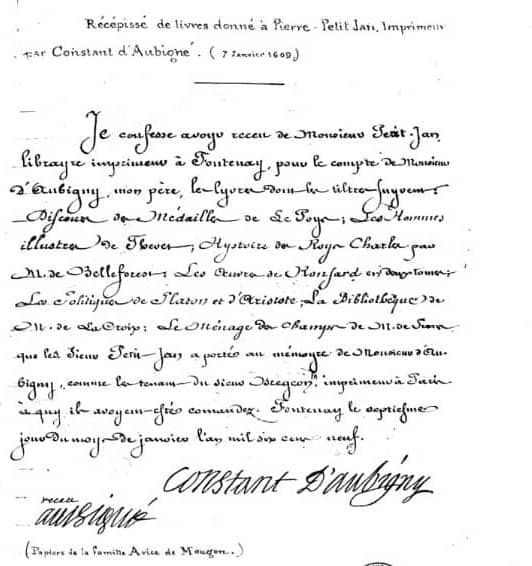 Récépissé de livres donné à Pierre - Petit Jan, Imprimeur
par Constant d'Aubigné. (7 Janvier 1609)
Je confesse avoyr receu de Monsieur Petit-Jan,
librayre imprimeur à Fontenay, pour le compte de Monsieur
d'Aubigny, mon père, les lyvres dont les tiltres suyvent:
Discours des Médailles de Le Poys; Les Hommes
illustres de Thevet; Hystoire du Roy Charles par
M. de Belleforest; Les Œuvres de Ronsard en deux tomes;
Les Politiques de Platon et d'Aristote; La Bibliothèque de
M. de La Croix; Le Ménage des Champs de M. de
que les Sieur Petit-Jan a portés au mémoyre de Monsieur d'Au-
bigny, comme les tenant du sieur imprimeur à Paris
à quy ils avoyent estés comandez. Fontenay le septiesme
jour du moys de janvier l'an mil six cens neuf.
Constant D'aubigny
receu
aubigné
(Papiers de la famille Avice de Mougon.)